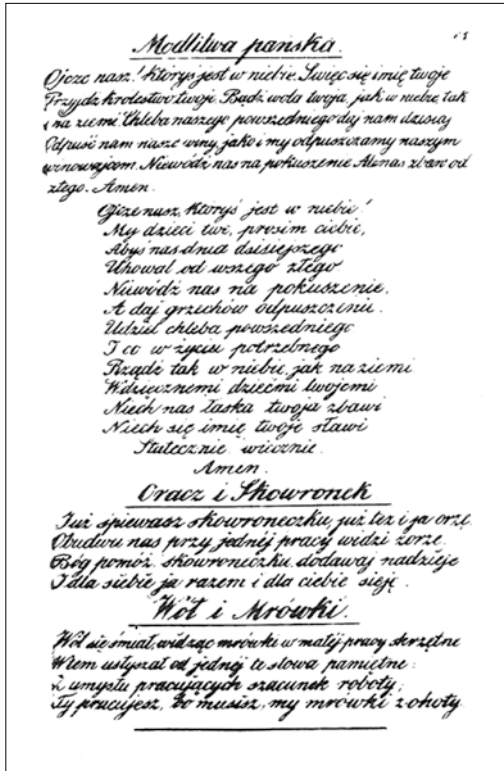 Modlitwa pańska.
Ojcze nasz! któryś jest w niebie. Święć się imię twoje
Przydź królestwo twoje. Bądź wola twoja, jak w niebie, tak
i na ziemi. Chleba naszego powszedniego daj nam dzisiaj
Odpuść nam nasze winy, jako i my odpuszczamy naszym
winowajcom. Niewódź nas na pokuszenie. Ale nas zbaw od
złego. Amen.
Ojcze nasz, któryś jest w niebie!
My dzieci twe, prosim ciebie,
Abyś nas dnia dzisiejszego
Uhował od wszego złego
Niewódź nas na pokuszenie.
A daj grzechów odpuszczenie.
Udziel chleba powszedniego
I co w życiu potrzebnego
Rządź tak w niebie, jak na ziemi
Wdzięcznemi dziećmi twojemi
Niech nas łaska twoja zbawi
Niech się imię twoje sławi
Statecznie wiecznie.
Amen.
Oracz i Skowronek
Już śpiewasz skowroneczku, już też i ja orzę.
Obudwu nas przy jednéj pracy widzi zorze.
Bóg pomóż, skowroneczku, dodawaj nadzieje
I dla siebie ja razem i dla ciebie sieję.
Wół i Mrówki.
Wół się śmiał, widząc mrówki w małéj pracy skrzętne
Wtem usłyszał od jednéj te słowa pamiętne:
Z umysłu pracujących szacunek roboty;
Ty pracujesz, bo musisz, my mrówki z ohoty